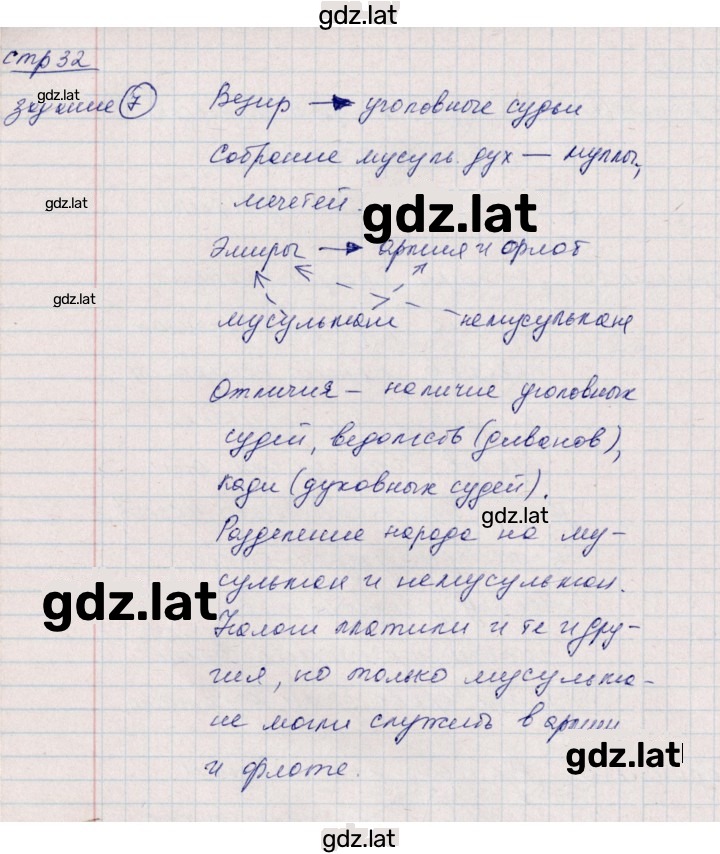 gdz.lat
стр 32
gdz.lat
задание 7 Везир → уголовные судьи
Собрание мусуль. дух — муллы,
gdz.lat
мечетей.
gdz.lat
Эмиры → армия и флот
gdz.lat
мусульмане немусульмане
Отличия – наличие уголовных
судей, ведомств (диванов),
кади (духовных судей).
gdz.lat
Разделение народа на му-
сульман и немусульман.
gdz.lat
Налоги платили и те и дру-
гия, но только мусульма-
не могли служить в армии
gdz.lat
и флоте.
gdz.lat